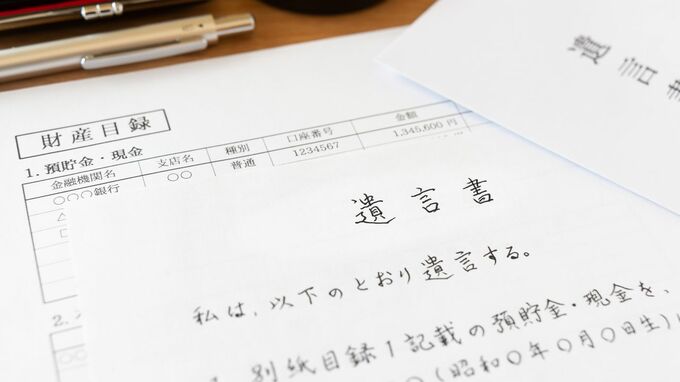 財産目録
1. 預貯金・現金
金融機関名 支店名 種別 口座番号 金額
○○○銀行 ○○ 普通 1234567 1,345,600 円
2.
○○
遺言書
遺言書
私は、以下のとおり遺言する。
別紙目録1記載の預貯金・現金を、
(昭和○年○月○日生)